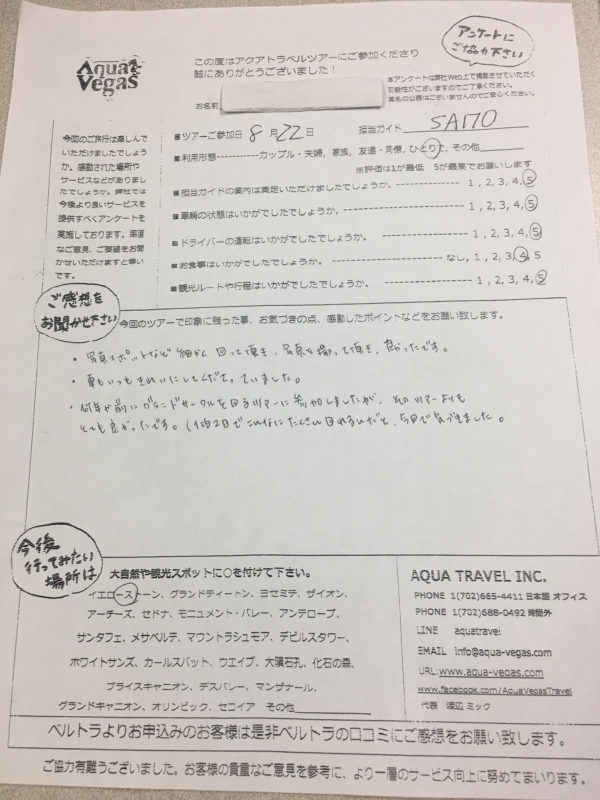 Aqua Vegas
この度はアクアトラベルツアーにご参加くださり
誠にありがとうございました！
アンケートに
ご協力下さい
本アンケートは弊社Web上で掲載させていただく
可能性がございますのでご了承ください。
実名の公表はございませんのでご安心ください。
お名前
今回のご旅行は楽しんで
いただけましたでしょう
か。感動された場所や
サービスなどがありまし
たでしょうか。弊社では
今後より良いサービスを
提供すべくアンケートを
実施しております。率直
なご意見、ご要望をお聞
かせいただけますと幸い
です。
■ツアーご参加日 8 月 22 日 担当ガイド SAITO
■利用形態------------カップル・夫婦, 家族, 友達・同僚, ひとりで, その他
※評価は1が最低 5が最高でお願いします
■担当ガイドの案内は満足いただけましたでしょうか。 1, 2, 3, 4, 5
■車輌の状態はいかがでしたでしょうか。 1, 2, 3, 4, 5
■ドライバーの運転はいかがでしたでしょうか。 1, 2, 3, 4, 5
■お食事はいかがでしたでしょうか。 なし, 1, 2, 3, 4, 5
■観光ルートや行程はいかがでしたでしょうか。 1, 2, 3, 4, 5
ご感想を
お聞かせ下さい
今回のツアーで印象に残った事、お気づきの点、感動したポイントなどをお願い致します。
・写真スポットなど細かく回って頂き、写真も撮って頂き、良かったです。
・車もいつもきれいにしてくださっていました。
・何年か前にグランドサークルを回るツアーに参加しましたが、そのツアーよりも
とても良かったです。1泊2日でこんなにたくさん回れるんだと、今回で気づきました。
今後
行ってみたい
場所は
大自然や観光スポットに○を付けて下さい。
イエローストーン、グランドティートン、ヨセミテ、ザイオン、
アーチーズ、セドナ、モニュメント・バレー、アンテロープ、
サンタフェ、メサベルテ、マウントラシュモア、デビルスタワー、
ホワイトサンズ、カールスバット、ウエイブ、大隕石孔、化石の森、
ブライスキャニオン、デスバレー、マンザナール、
グランドキャニオン、オリンピック、セコイア その他
AQUA TRAVEL INC.
PHONE 1(702)665-4411 日本語 オフィス
PHONE 1(702)688-0492 時間外
LINE aquatravel
EMAIL info@aqua-vegas.com
URL:www.aqua-vegas.com
www.facebook.com/AquaVegasTravel
代表 渡辺 ミック
ベルトラよりお申込みのお客様は是非ベルトラの口コミにご感想をお願い致します。
ご協力有難うございました。お客様の貴重なご意見を参考に、より一層のサービス向上に努めてまいります。